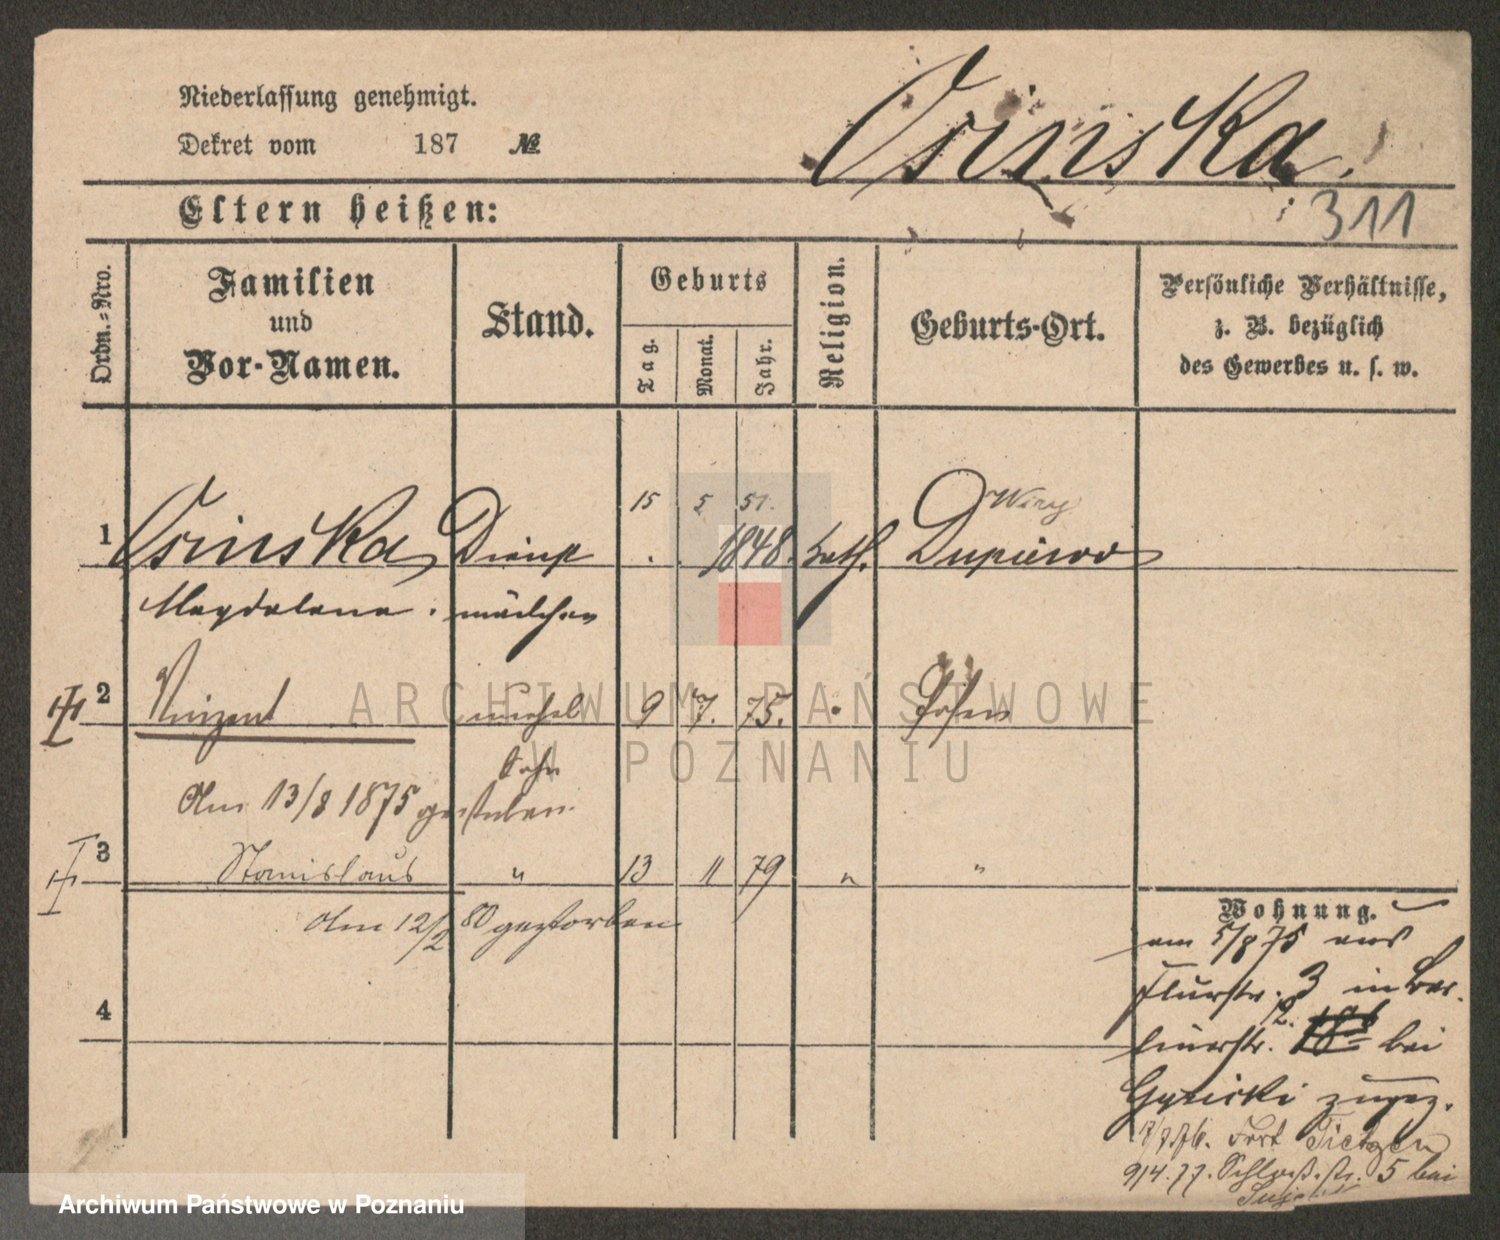 Niederlassung genehmigt.
Dekret vom 187 №
Osinska.
311
Eltern heißen:
Ordn.-Nro.
Familien
und
Vor-Namen.
Stand.
Geburts
Tag.
Monat.
Jahr.
Religion.
Geburts-Ort.
Persönliche Verhältnisse,
z. B. bezüglich
des Gewerbes u. s. w.
15 5 51.
1 Osinska Dienst 1848. kath. Dupiewo
Magdalena. mädchen
2 Vinzent unehel 9 7. 75. Posen
Sohn
Am 13/8 1875 gestorben.
3 Stanislaus " 13 11 79 " "
Am 12/2 80 gestorben
4
Wohnung.
am 5/8 75 aus
Flurstr. 3 in Ber-
linerstr. 12. bei
zugez.
17/7 76. Fort Tietzen
9/4. 77. Schloßstr. 5 bei
ARCHIWUM PAŃSTWOWE
W POZNANIU
Archiwum Państwowe w Poznaniu